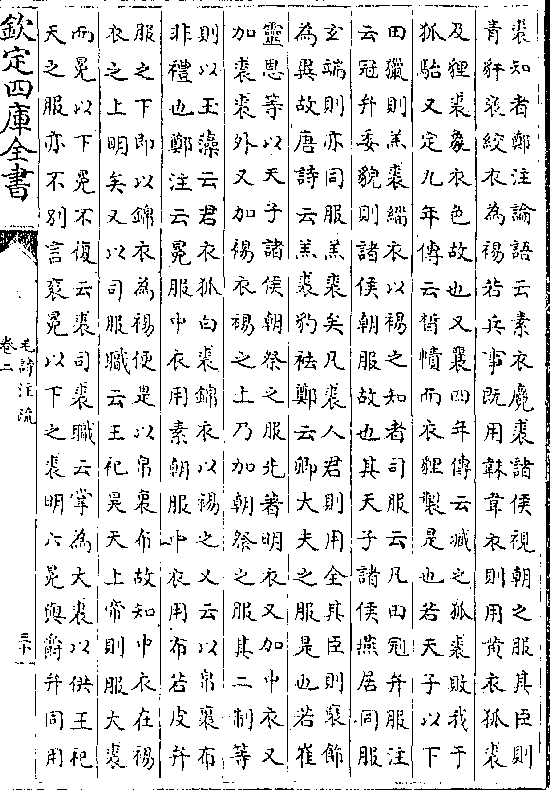 裘知者鄭注論語云素衣麑裘諸侯視朝之服其臣則
青豻褎絞衣為裼若兵事既用韎韋衣則用黄衣狐裘
及狸裘象衣色故也又襄四年傳云臧之狐裘敗我于
狐駘又定九年傳云晳幘而衣狸製是也若天子以下
田獵則羔裘緇衣以裼之知者司服云凡田冠弁服注
云冠弁委貌則諸侯朝服故也其天子諸侯燕居同服
玄端則亦同服羔裘矣凡裘人君則用全其臣則褎飾
為異故唐詩云羔裘豹袪鄭云卿大夫之服是也若崔
靈恩等以天子諸侯朝祭之服先著明衣又加中衣又
加裘裘外又加裼衣裼之上乃加朝祭之服其二制等
則以玉藻云君衣狐白裘錦衣以裼之又云以帛裏布
非禮也鄭注云冕服中衣用素朝服中衣用布若皮弁
服之下即以錦衣為裼便是以帛裏布故知中衣在裼
衣之上明矣又以司服職云王祀昊天上帝則服大裘
而冕以下冕不復云裘司裘職云掌為大裘以供王祀
天之服亦不別言衮冕以下之裘明六冕與爵弁同用
欽定四庫全書
毛詩注疏
卷二